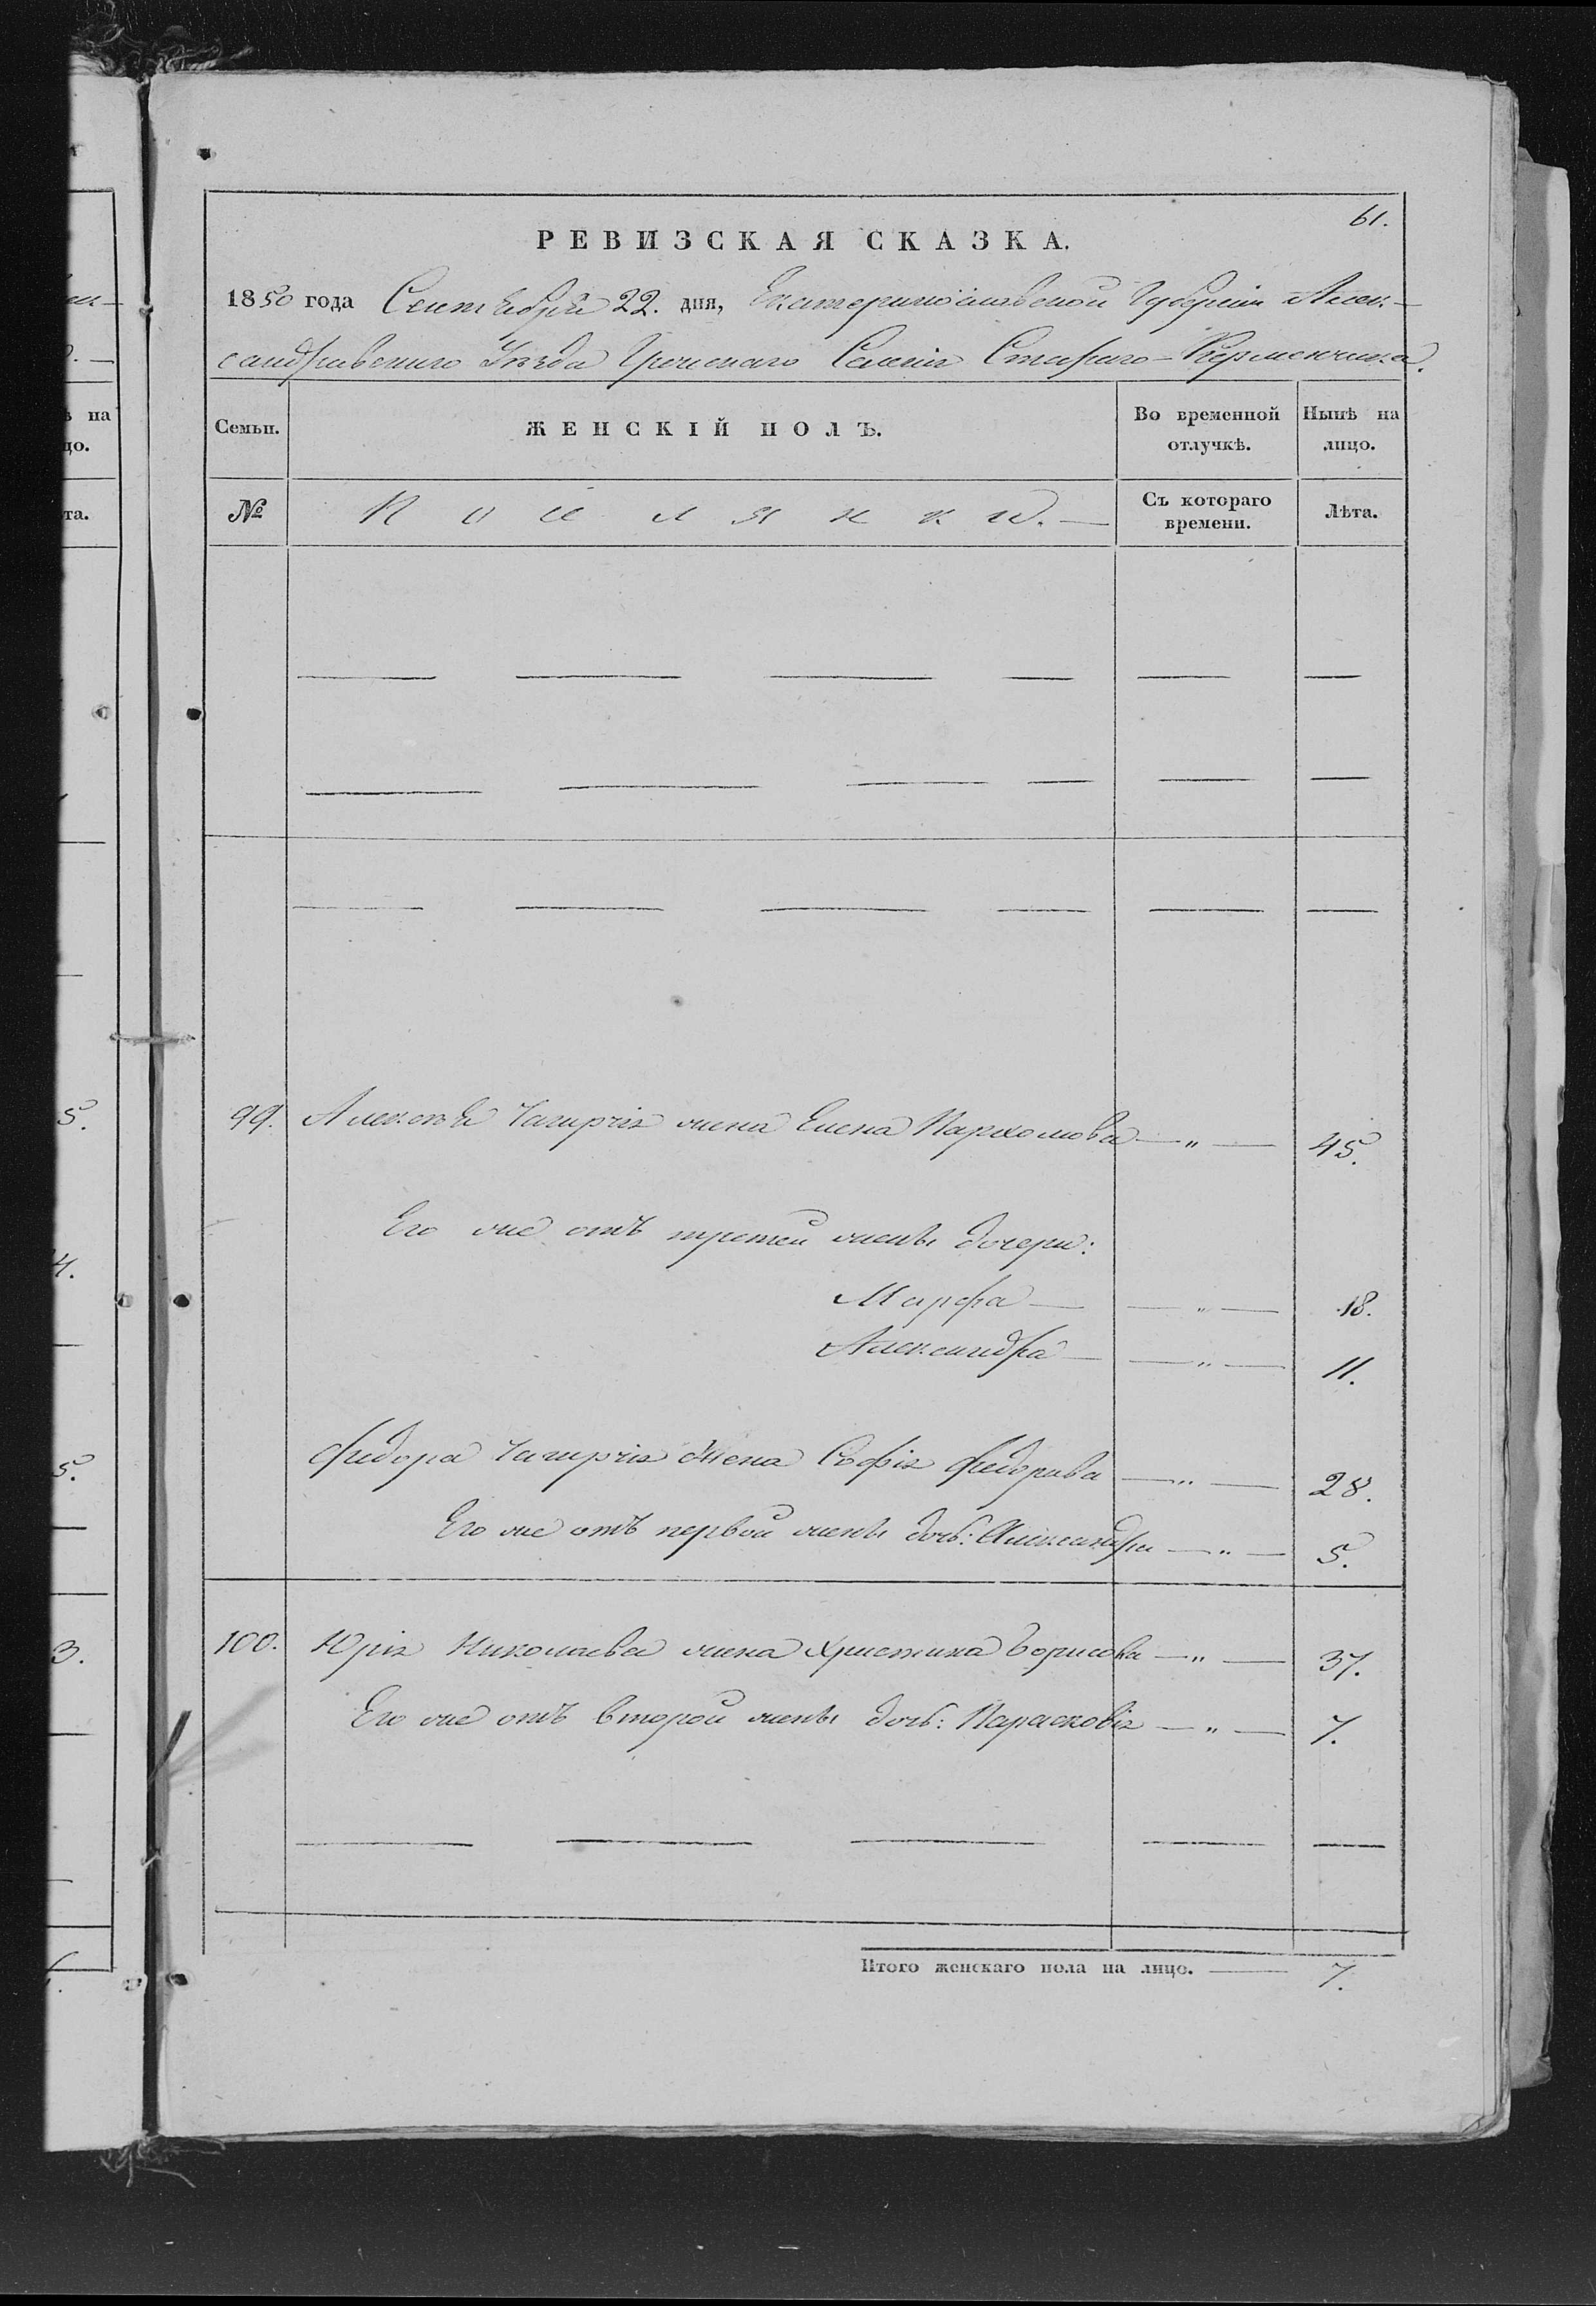 61.
РЕВИЗСКАЯ СКАЗКА.
1850 года Сентября 22. дня, Екатеринославской Губерніи Алек-
сандровскаго Уѣзда Греческаго Селенія Стараго-Керменчика.
Семьи. ЖЕНСКІЙ ПОЛЪ. Во временной отлучкѣ. Нынѣ на лицо.
№ Поселянки. — Съ котораго времени. Лѣта.
99. Алексѣя жена Елена Пархомова — " — 45.
Его же отъ третей жены дочери:
Марфа — — " — 18.
Александра — — " — 11.
Федора Жена Софія Федорова — " — 28.
Его же отъ первой жены дочь: Александра — " — 5.
100. Юрія Николаева жена Христина Борисова — " — 37.
Его же отъ второй жены дочь: Парасковія — " — 7.
Итого женскаго пола на лицо. — 7.
ѣ на
цо.
та.
5.
4.
5.
3.